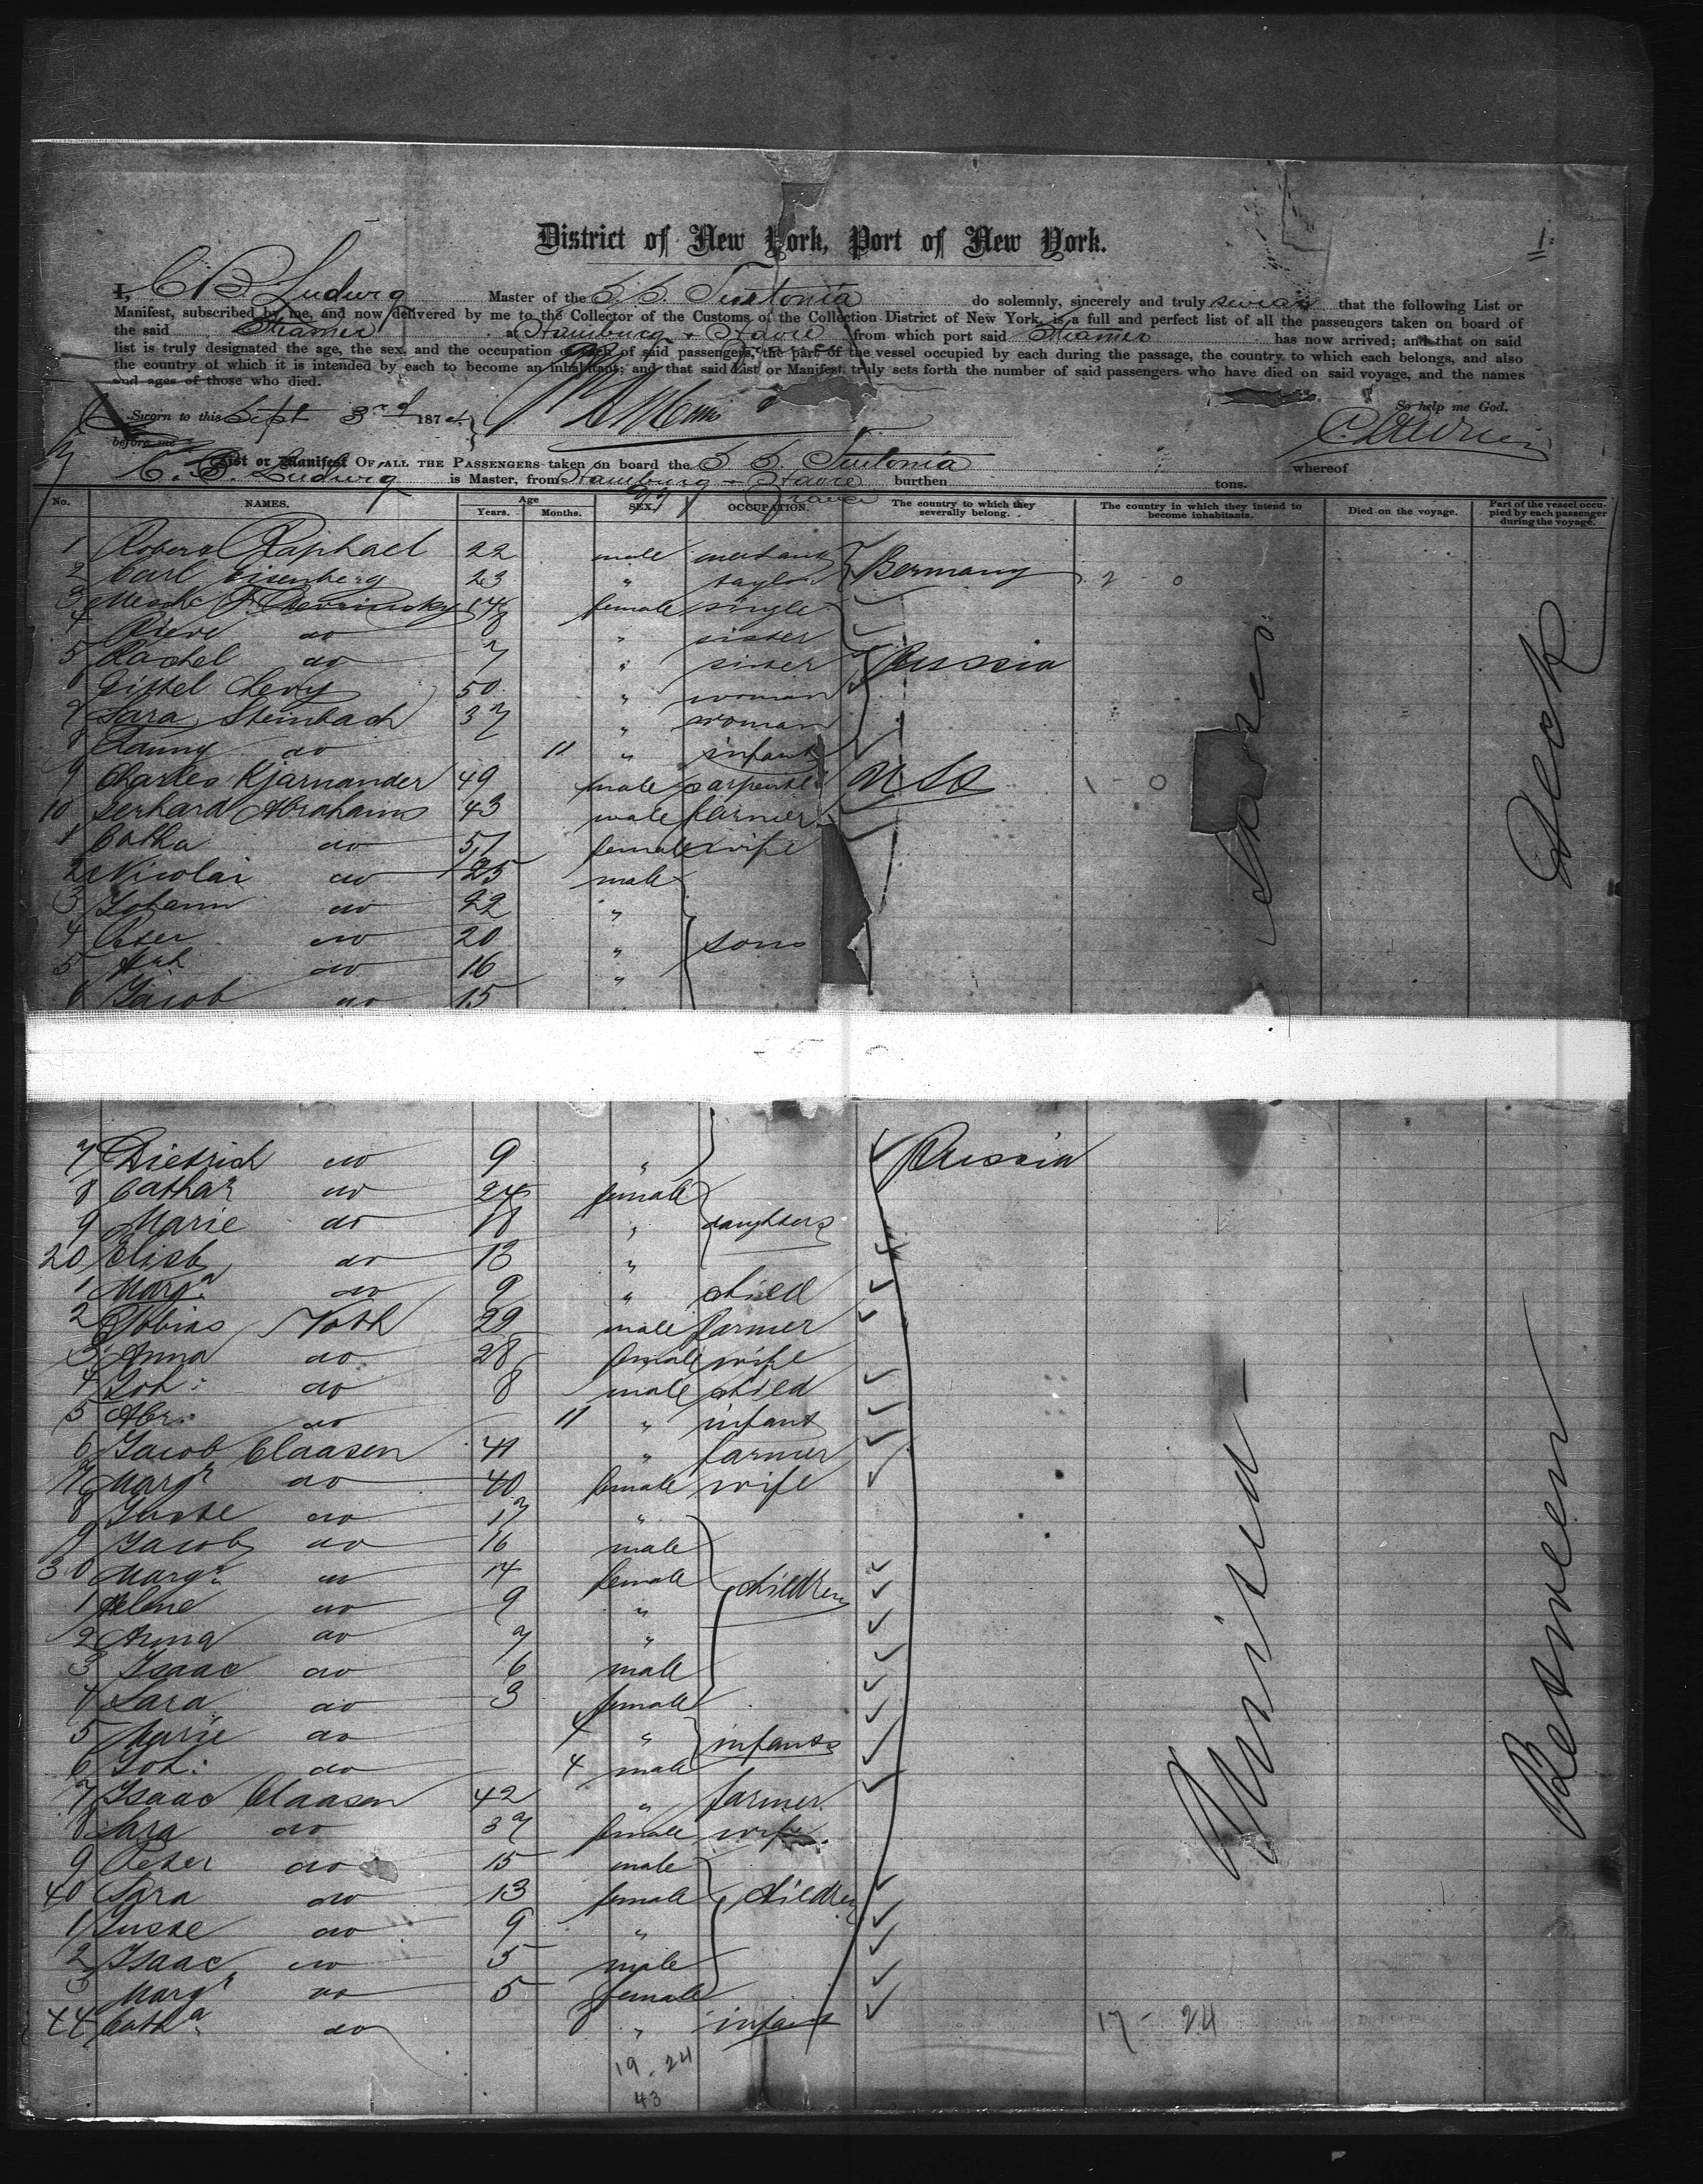 District of New York, Port of New York.
1.
I, C B Ludwig Master of the S. S. Teutonia do solemnly, sincerely and truly swear that the following List or
Manifest, subscribed by me, and now delivered by me to the Collector of the Customs of the Collection District of New York, is a full and perfect list of all the passengers taken on board of
the said Steamer at Hamburg & Havre from which port said Steamer has now arrived; and that on said
list is truly designated the age, the sex, and the occupation of each of said passengers, the part of the vessel occupied by each during the passage, the country to which each belongs, and also
the country of which it is intended by each to become an inhabitant; and that said List or Manifest truly sets forth the number of said passengers who have died on said voyage, and the names
and ages of those who died.
So help me God.
Sworn to this Sept 3rd 1874
before me
List or Manifest OF ALL THE PASSENGERS taken on board the S S. Teutonia whereof
C. B. Ludwig is Master, from Hamburg - Havre burthen tons.
France
No. NAMES. Age Years. Months. SEX. OCCUPATION. The country to which they severally belong. The country in which they intend to become inhabitants. Died on the voyage. Part of the vessel occupied by each passenger during the voyage.
1 Raphael 22 male
2 Carl Eisenberg 23 " taylor Germany 2 - 0
3 14 female single
4 do 8 " sister
5 Rachel do 7 " sister Russia
6 Gittel Levy 50 " woman
7 Sara Steinbach 37 " woman
8 Fanny do 11 " infant
9 Charles Kjarnander 49 male carpenter U St 1 - 0
10 Gerhard Abrahams 43 male farmer
1 Catha do 51 female wife
2 Nicolai do 25 male
3 Johann do 22 "
4 Peter do 20 " sons
5 do 16 "
6 Jacob do 15
7 Dietrich do 9 " Russia
8 Catha do 24 female
9 Marie do 18 " daughters
20 Elisb do 13 "
1 Marga do 9 " child
2 Tobias Voth 29 male farmer
3 Anna do 28 female wife
4 Joh: do 8 male child
5 Abr: do 11 " infant
6 Jacob Claasen 41 " farmer
7 Margr do 40 female wife
8 Juste do 17 "
9 Jacob do 16 male
30 Marga do 14 female children
1 Helene do 9 "
2 Anna do 7 "
3 Isaac do 6 male
4 Sara do 3 female
5 Marie do 4 " infants
6 Joh: do 4 male
7 Isaac Claasen 42 " farmer
8 Sara do 37 female wife
9 Peter do 15 male
40 Sara do 13 female children
1 Juste do 9 "
2 Isaac do 5 male
3 Margr do 5 female
44 Catha do 8 " infant 17 - 24
19. 24
43
United States
Between Deck